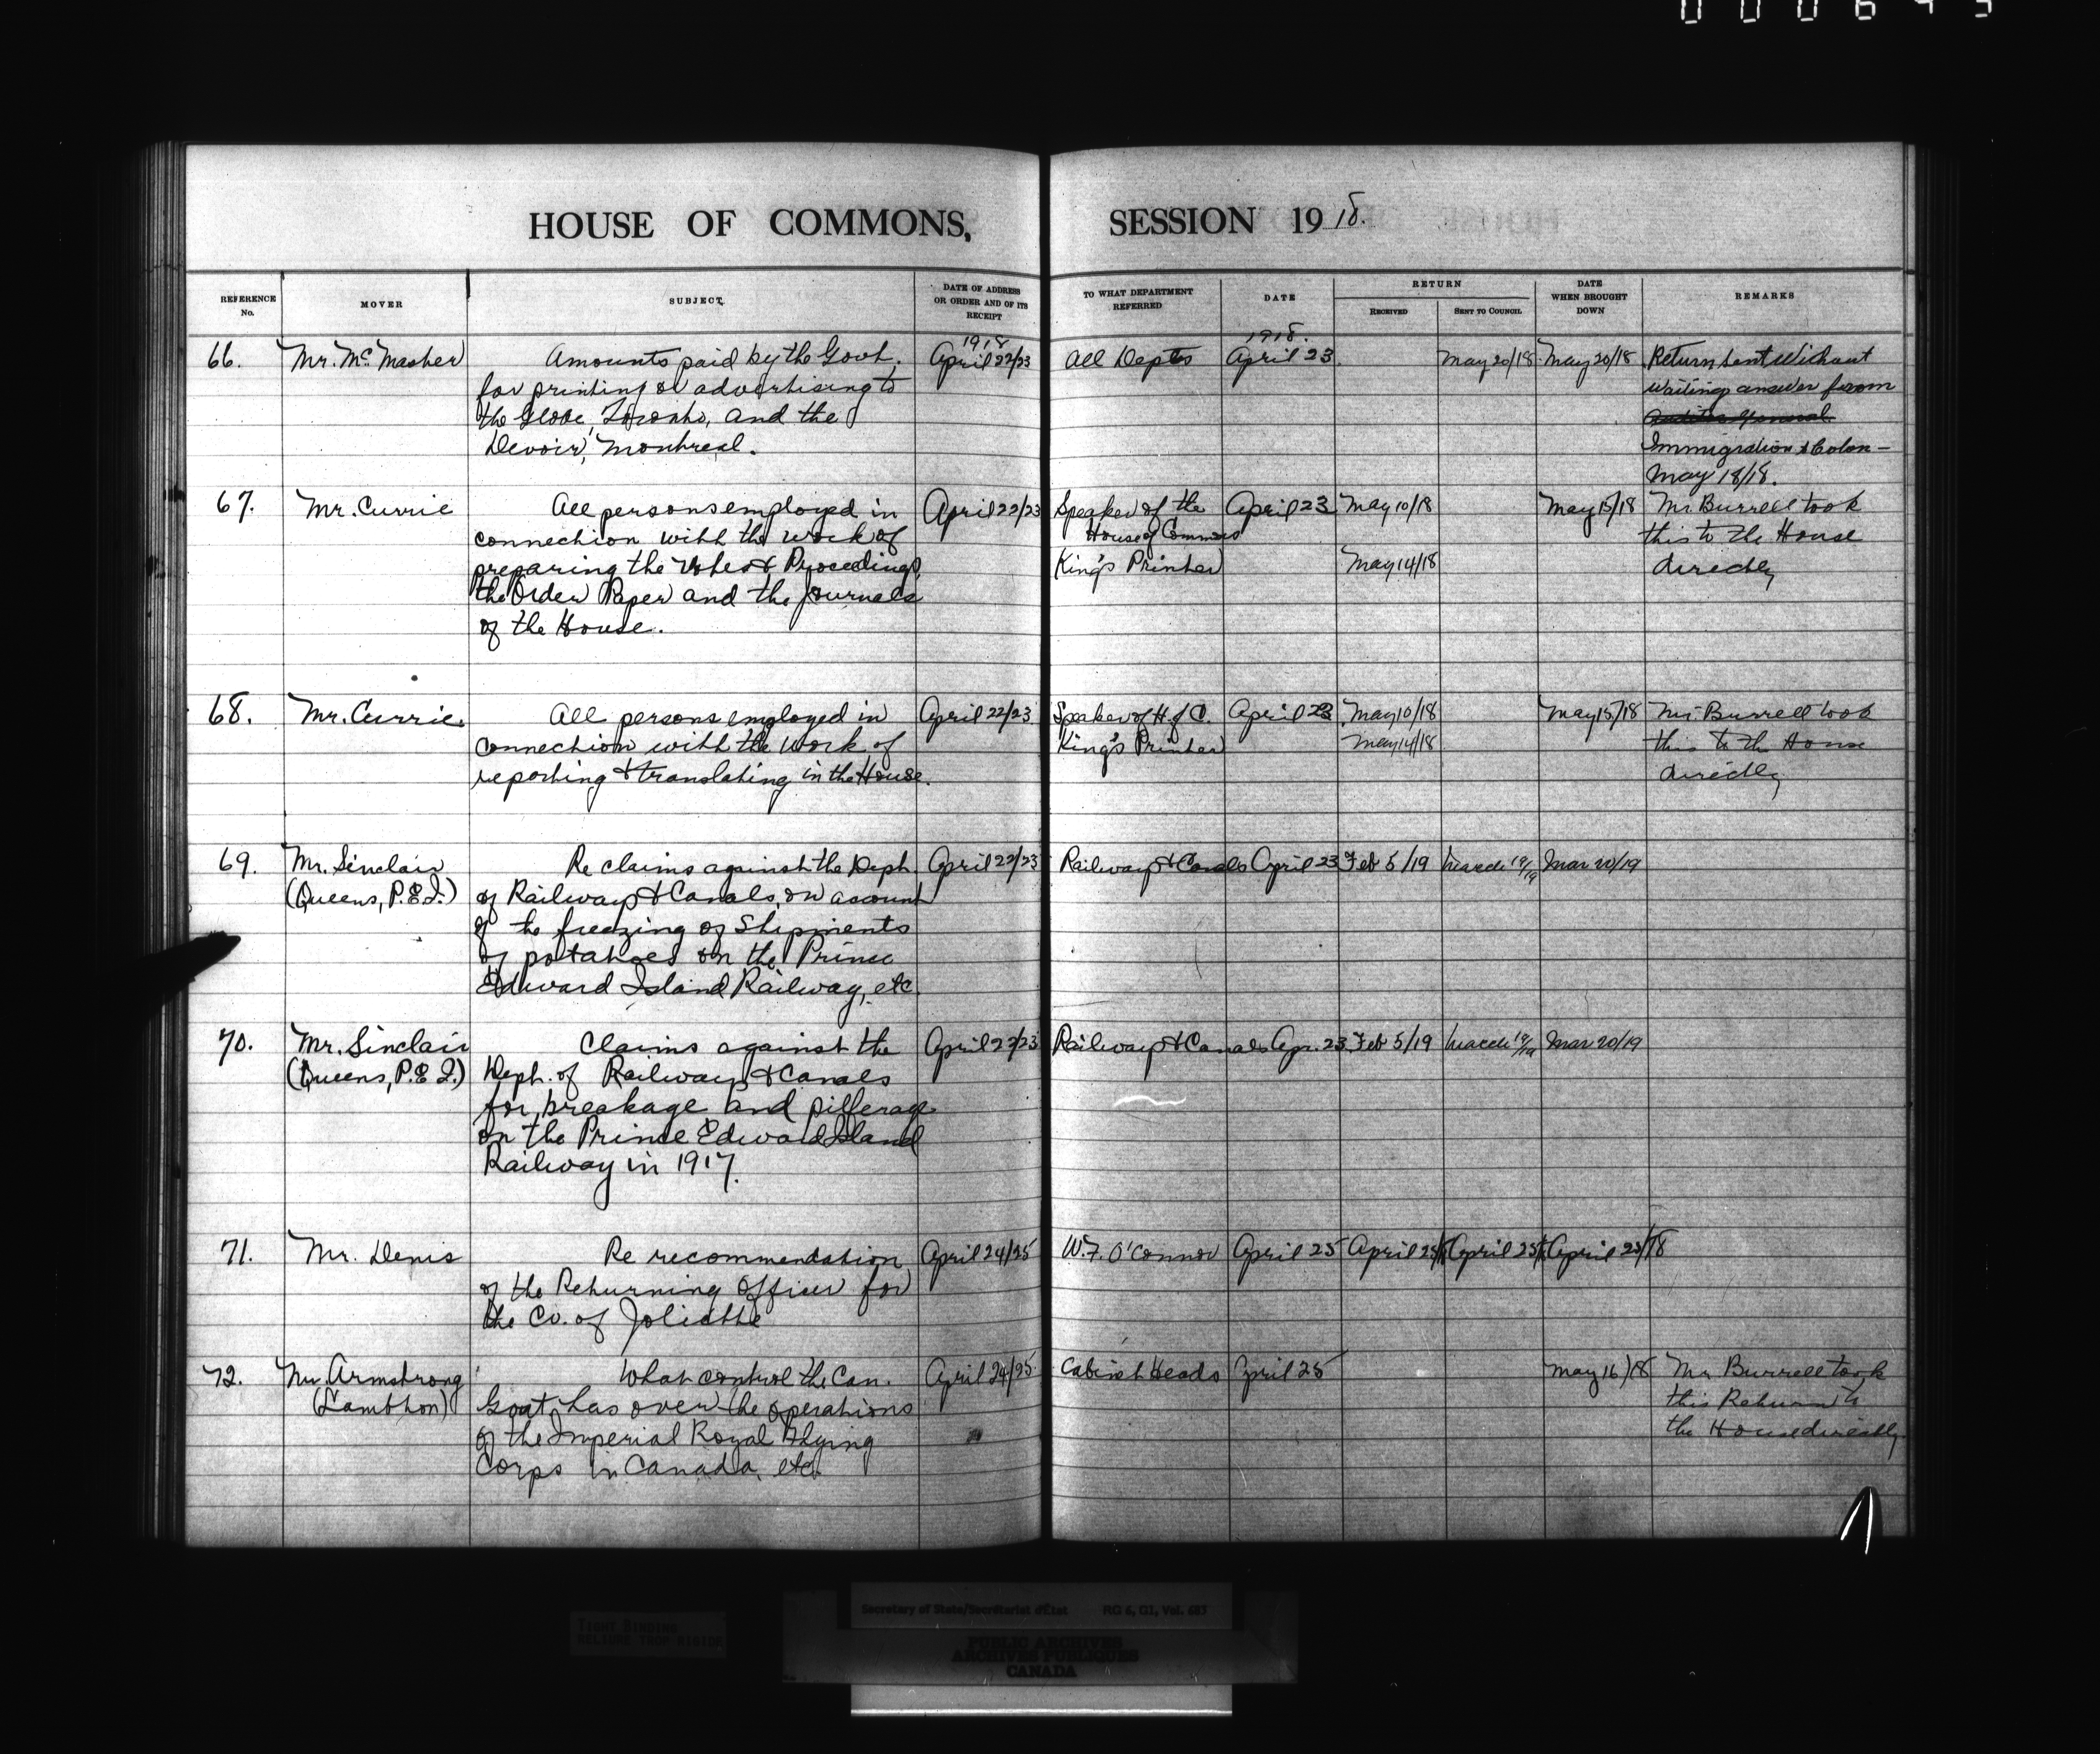 HOUSE OF COMMONS, SESSION 1918.
REFERENCE No. MOVER SUBJECT DATE OF ADDRESS OR ORDER AND OF ITS RECEIPT TO WHAT DEPARTMENT REFERRED DATE RETURN RECEIVED SENT TO COUNCIL DATE WHEN BROUGHT DOWN REMARKS
1918 1918.
66. Mr. McMaster Amounts paid by the Govt. April 22/23 All Depts April 23 May 20/18 May 20/18 Return sent without
for printing or advertising to waiting answer from
the Globe, Toronto, and the Auditor General
Devoir, Montreal. Immigration & Colon—
May 18/18.
67. Mr. Currie All persons employed in April 22/23 Speaker of the April 23 May 10/18 May 15/18 Mr Burrell took
connection with the work of House of Commons this to the House
preparing the Votes & Proceedings, King's Printer May 14/18 directly
the Order Paper and the Journals
of the House.
68. Mr. Currie All persons employed in April 22/23 Speaker of H. of C. April 23 May 10/18 May 15/18 Mr. Burrell took
connection with the work of King's Printer May 14/18 this to the House
reporting & translating in the House. directly
69. Mr. Sinclair Re claims against the Dept. April 22/23 Railways & Canals April 23 Feb 5/19 March 19/19 Mar 20/19
(Queens, P.E.I.) of Railways & Canals, on account
of the freezing of Shipments
of potatoes on the Prince
Edward Island Railway, etc.
70. Mr. Sinclair Claims against the April 22/23 Railways & Canals Apr. 23 Feb 5/19 March 19/19 Mar 20/19
(Queens, P.E.I.) Dept. of Railways & Canals
for breakage and pilferage
on the Prince Edward Island
Railway in 1917.
71. Mr. Denis Re recommendation April 24/25 W.F. O'Connor April 25 April 25/18 April 25/18 April 25/18
of the Returning Officer for
the Co. of Joliette
72. Mr. Armstrong What control the Can. April 24/25 Cabinet Heads April 25 May 16/18 Mr. Burrell took
(Lambton) Govt. has over the operations this Return to
of the Imperial Royal Flying the House directly.
Corps in Canada, etc.
TIGHT BINDING
RELIURE TROP RIGIDE
Secretary of State/Secrétariat d'État RG 6, G1, Vol. 683
PUBLIC ARCHIVES
ARCHIVES PUBLIQUES
CANADA